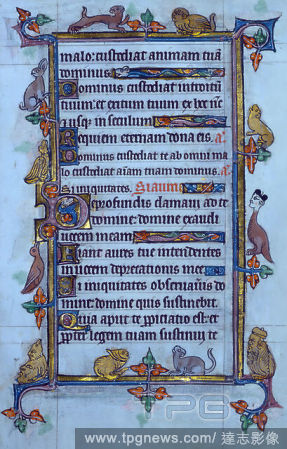 malo: custodiat animam tuā
dominus
Dominus custodiat introitū
tuum: et exitum tuum ex hoc nūc
usq; in seculum
Requiem eternam dona eis. 
Dominus custodiat te ab omni ma
lo custodiat aīam tuam dominus.
Si iniquitates.
De profundis clamaui ad te
domine: domine exaudi
uocem meam
Fiant aures tue intendentes
in uocem deprecationis mee
Si iniquitates obseruaūis do
mine: domine quis sustinebit.
Quia aput te ppiciatio est: et
ppter legem tuam sustinui te
PG
www.tpgnews.com/ 達志影像